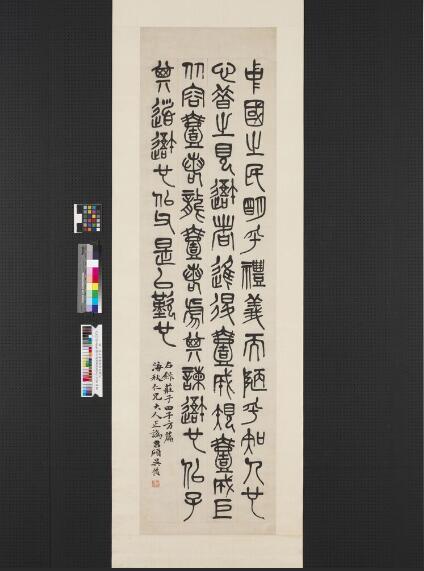 中國之民明乎禮義而陋乎知人
心昔之見吾者進退壹成規壹成巨
從容壹若龍壹若虎其諫吾也似子
其道吾也似父是以歎也
右錄莊子田子方篇
海秋仁兄大人正 昌碩吳俊